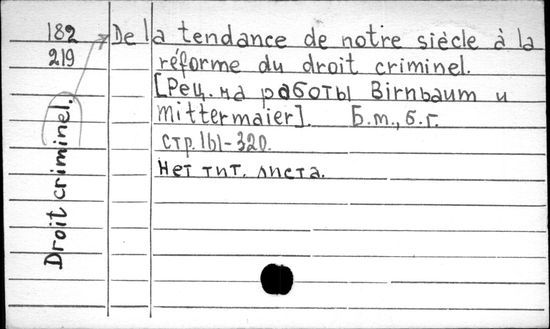 182
219
De la tendance de notre siècle à la
réforme du droit criminel.
[Рец. на работы Birnbaum и
Mittermaier]. Б.м., б.г.
стр. 161-320.
Нет тит. листа.
Droit criminel.